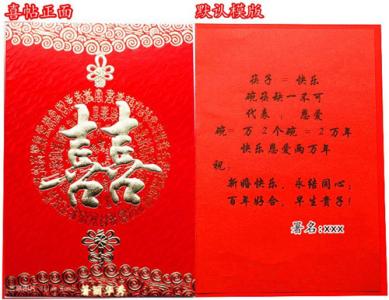 喜帖正面
囍
默认模版
筷子 = 快乐
碗筷缺一不可
代表 : 恩爱
碗=万 2个碗 = 2万年
快乐恩爱两万年
祝:
新婚快乐,永结同心;
百年好合,早生贵子!
署名:xxx